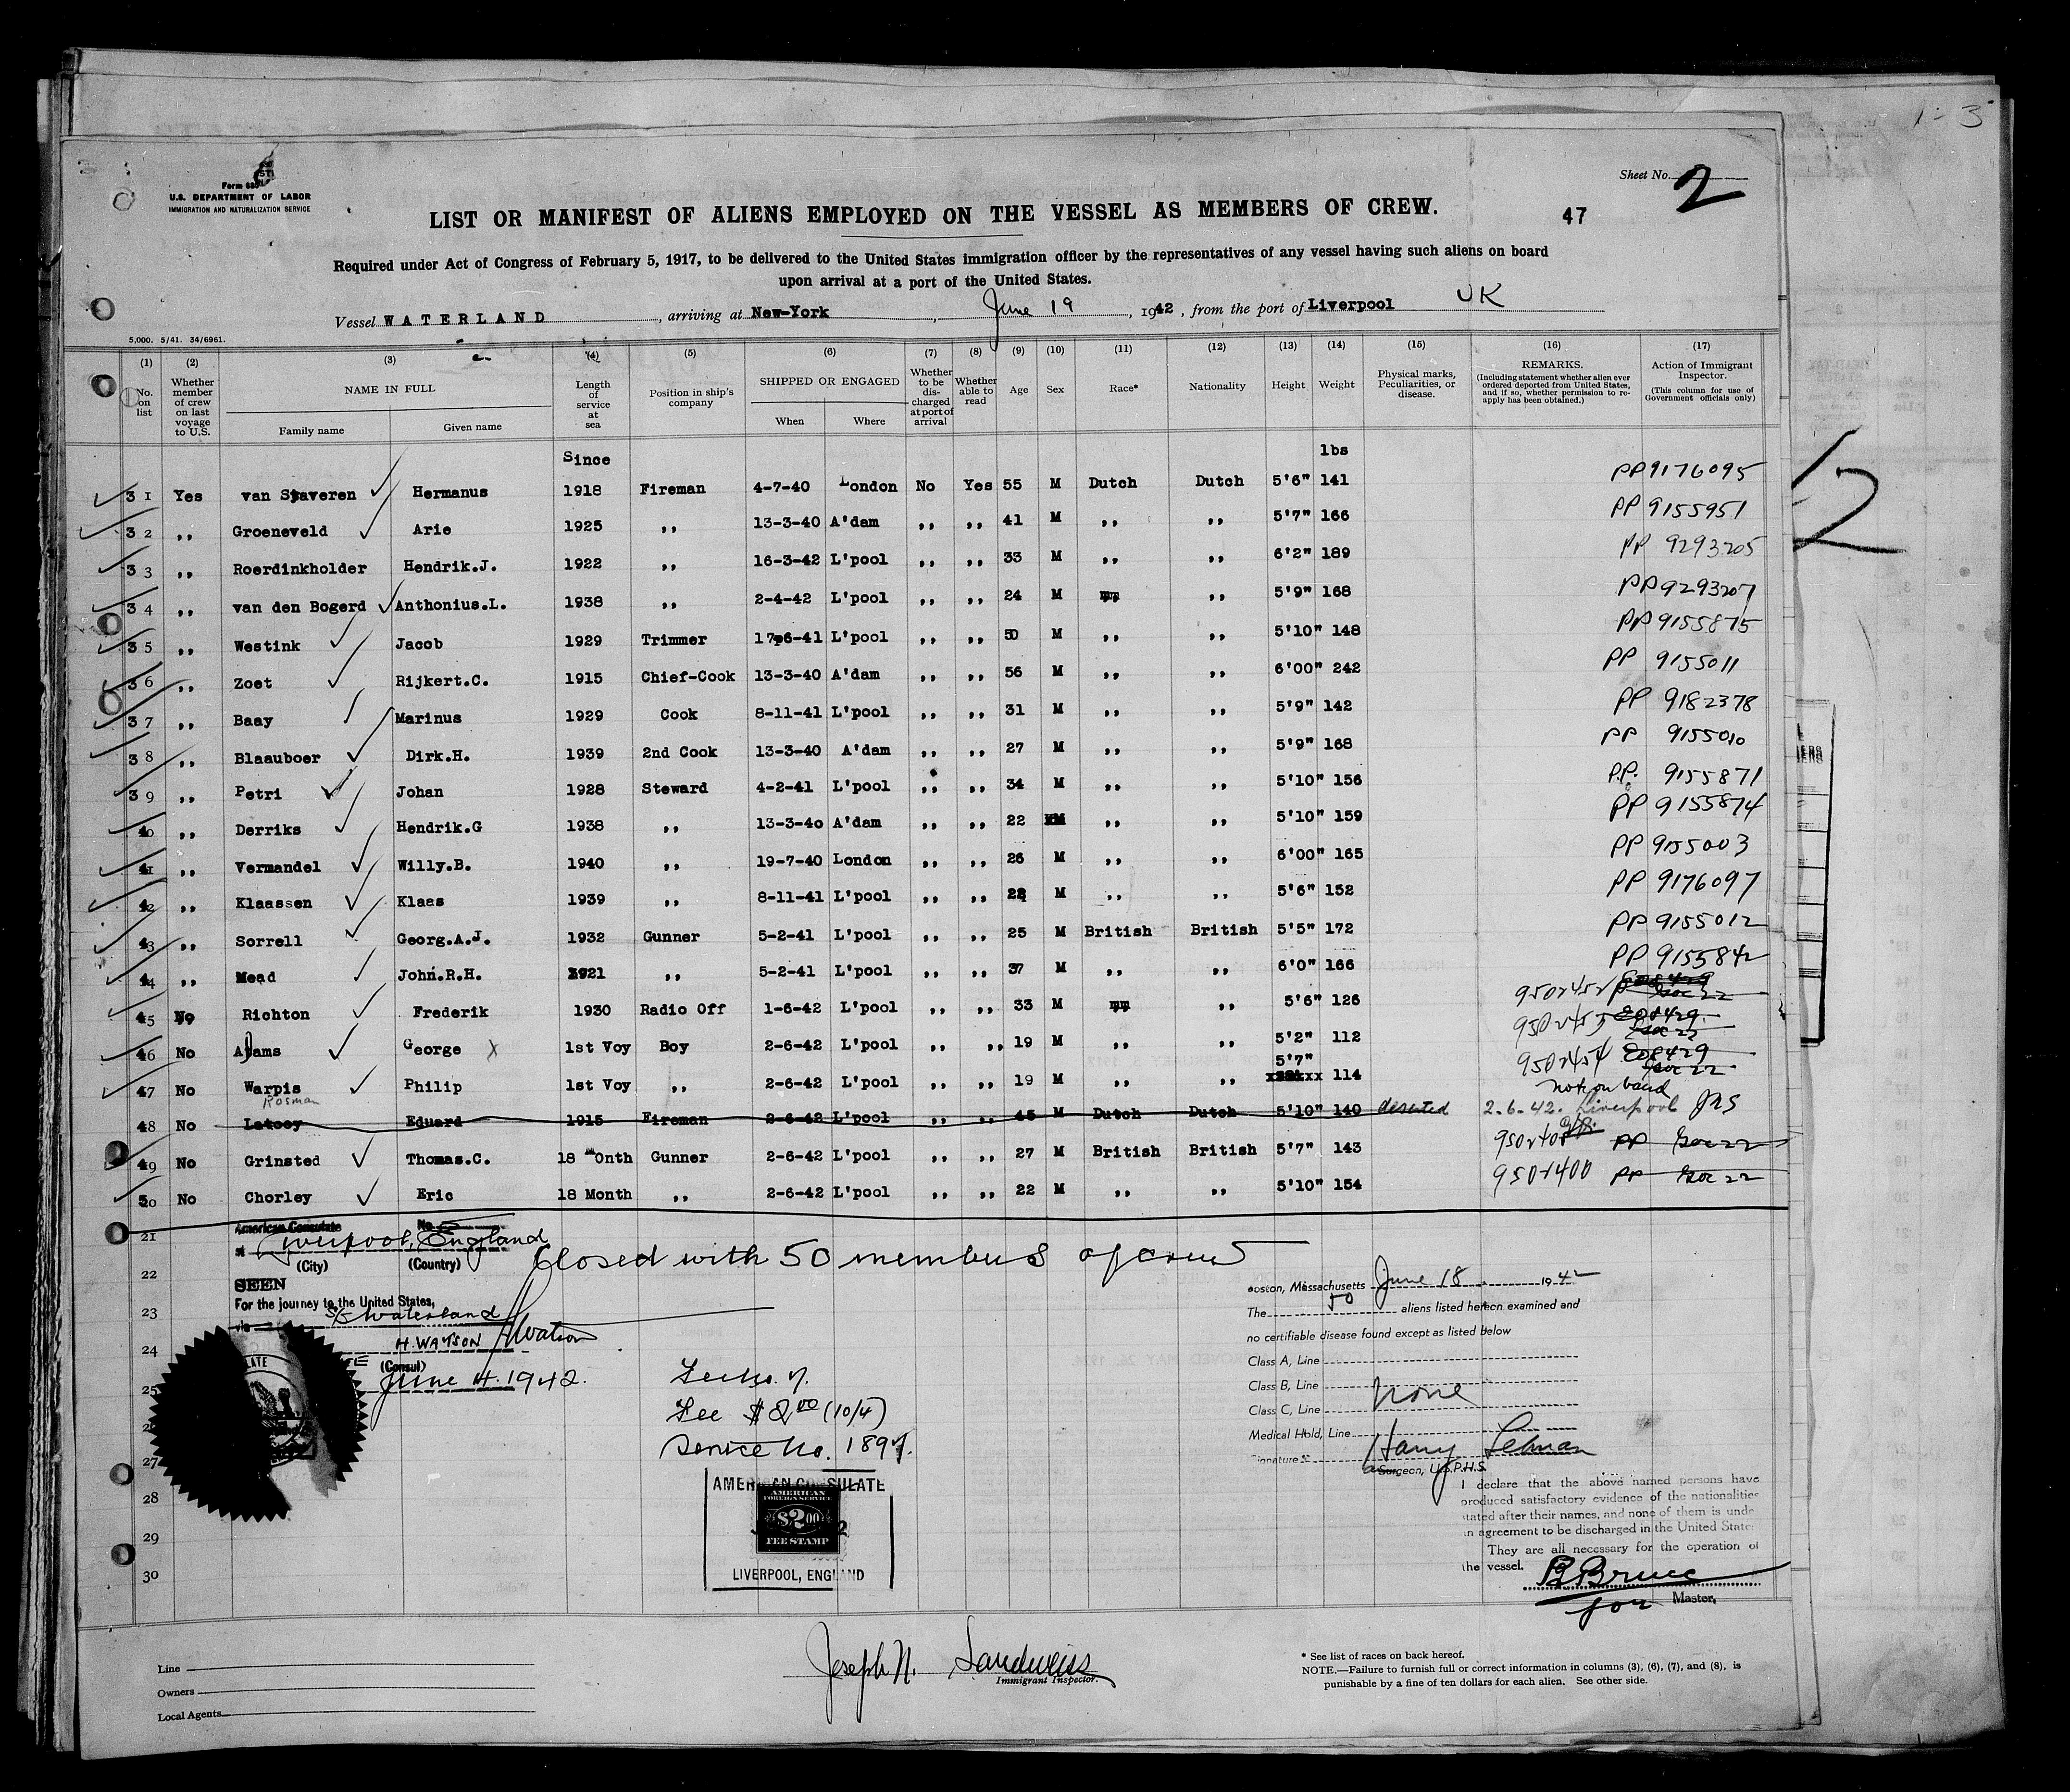 1-3
Form 680
U.S. DEPARTMENT OF LABOR
IMMIGRATION AND NATURALIZATION SERVICE
Sheet No. 2
LIST OR MANIFEST OF ALIENS EMPLOYED ON THE VESSEL AS MEMBERS OF CREW.
47
Required under Act of Congress of February 5, 1917, to be delivered to the United States immigration officer by the representatives of any vessel having such aliens on board
upon arrival at a port of the United States.
Vessel WATERLAND, arriving at New-York, June 19, 1942, from the port of Liverpool UK
5,000. 5/41. 34/6961.
(1) (2) (3) (4) (5) (6) (7) (8) (9) (10) (11) (12) (13) (14) (15) (16) (17)
No. on list
Whether member of crew on last voyage to U.S.
NAME IN FULL
Family name
Given name
Length of service at sea
Position in ship's company
SHIPPED OR ENGAGED
When
Where
Whether to be discharged at port of arrival
Whether able to read
Age
Sex
Race*
Nationality
Height
Weight
Physical marks, Peculiarities, or disease.
REMARKS.
(Including statement whether alien ever ordered deported from United States, and if so, whether permission to re-apply has been obtained.)
Action of Immigrant Inspector.
(This column for use of Government officials only)
Since lbs
31 Yes van Staveren Hermanus 1918 Fireman 4-7-40 London No Yes 55 M Dutch Dutch 5'6" 141 PP9176095
32 ,, Groeneveld Arie 1925 ,, 13-3-40 A'dam ,, ,, 41 M ,, ,, 5'7" 166 PP 9155951
33 ,, Roerdinkholder Hendrik.J. 1922 ,, 16-3-42 L'pool ,, ,, 33 M ,, ,, 6'2" 189 PP 9293205
34 ,, van den Bogerd Anthonius.L. 1938 ,, 2-4-42 L'pool ,, ,, 24 M ,, ,, 5'9" 168 PP9293207
35 ,, Westink Jacob 1929 Trimmer 17-6-41 L'pool ,, ,, 50 M ,, ,, 5'10" 148 PP9155875
36 ,, Zoet Rijkert.C. 1915 Chief-Cook 13-3-40 A'dam ,, ,, 56 M ,, ,, 6'00" 242 PP 9155011
37 ,, Baay Marinus 1929 Cook 8-11-41 L'pool ,, ,, 31 M ,, ,, 5'9" 142 PP 9182378
38 ,, Blaauboer Dirk.H. 1939 2nd Cook 13-3-40 A'dam ,, ,, 27 M ,, ,, 5'9" 168 PP 9155010
39 ,, Petri Johan 1928 Steward 4-2-41 L'pool ,, ,, 34 M ,, ,, 5'10" 156 P.P. 9155871
40 ,, Derriks Hendrik.G 1938 ,, 13-3-40 A'dam ,, ,, 22 M ,, ,, 5'10" 159 PP 9155874
41 ,, Vermandel Willy.B. 1940 ,, 19-7-40 London ,, ,, 26 M ,, ,, 6'00" 165 PP 9155003
42 ,, Klaassen Klaas 1939 ,, 8-11-41 L'pool ,, ,, M ,, ,, 5'6" 152 PP 9176097
43 ,, Sorrell Georg.A.J. 1932 Gunner 5-2-41 L'pool ,, ,, 25 M British British 5'5" 172 PP 9155012
44 ,, Mead John.R.H. 1921 ,, 5-2-41 L'pool ,, ,, 37 M ,, ,, 6'0" 166 PP 915584
45 No Richton Frederik 1930 Radio Off 1-6-42 L'pool ,, ,, 33 M ,, 5'6" 126
46 No Adams George X 1st Voy Boy 2-6-42 L'pool ,, ,, 19 M ,, ,, 5'2" 112
47 No Warpis Philip 1st Voy ,, 2-6-42 L'pool ,, ,, 19 M ,, ,, 5'7" 114
not on board
Rosman
48 No Eduard 1915 Fireman 2-6-42 L'pool ,, ,, 45 M Dutch Dutch 5'10" 140 deserted 2.6.42. Liverpool
49 No Grinsted Thomas.C. 18 Month Gunner 2-6-42 L'pool ,, ,, 27 M British British 5'7" 143 PP
50 No Chorley Eric 18 Month ,, 2-6-42 L'pool ,, ,, 22 M ,, ,, 5'10" 154 PP
21
22
23
24
25
26
27
28
29
30
American Consulate No.
at Liverpool, England
(City) (Country)
Closed with 50 members of crew
SEEN
For the journey to the United States,
via S/S Waterland
H. WATSON HWatson
(Consul)
June 4. 1942.
Fee $2.00 (10/4)
Service No. 1897.
AMERICAN CONSULATE
AMERICAN FOREIGN SERVICE
$2.00
FEE STAMP
LIVERPOOL, ENGLAND
Boston, Massachusetts June 18 1942
The 50 aliens listed hereon examined and
no certifiable disease found except as listed below
Class A, Line
Class B, Line none
Class C, Line
Medical Hold, Line
Signature Harry Lehman
Surgeon, U.S.P.H.S.
I declare that the above named persons have
produced satisfactory evidence of the nationalities
stated after their names, and none of them is under
an agreement to be discharged in the United States
They are all necessary for the operation of
the vessel.
B Bruce
for Master.
Line
Owners
Local Agents
Joseph N. Sandweiss
Immigrant Inspector.
* See list of races on back hereof.
NOTE.—Failure to furnish full or correct information in columns (3), (6), (7), and (8), is
punishable by a fine of ten dollars for each alien. See other side.